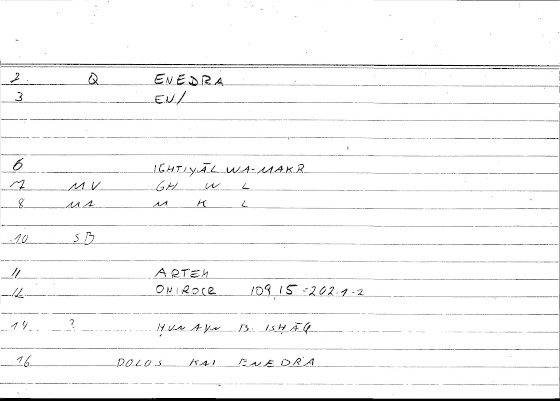 2 Q ENEDRA
3 EN/
6 IGHTIYĀL WA-MAKR
7 MV GH W L
8 MA M K L
10 SB
11 ARTEM
12 ONIROCR 109,15 = 202.1-2
14 ? ḤUNAYN B. ISḤĀQ
16 DOLOS KAI ENEDRA